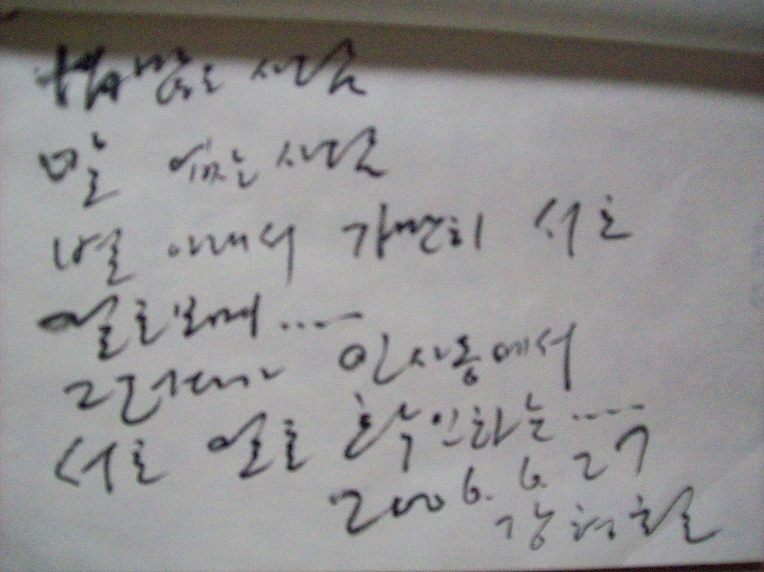 사람
말 없는 사람
별 아래서 가만히 서로
얼굴보며.....
그러다가 인사동에서
서로 얼굴 확인하는.....
2006. 6. 27
강형철